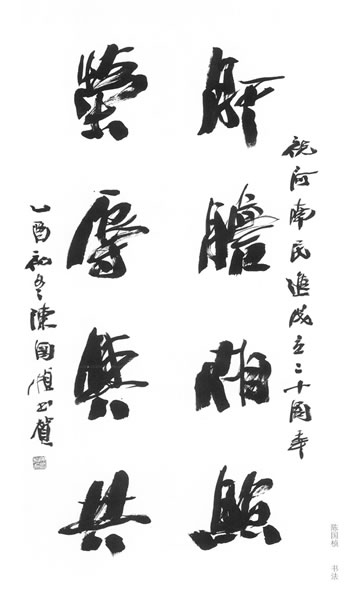 祝河南民進成立二十周年
肝膽相照
榮辱與共
乙酉初冬陳國楨書賀
陈国桢 书法